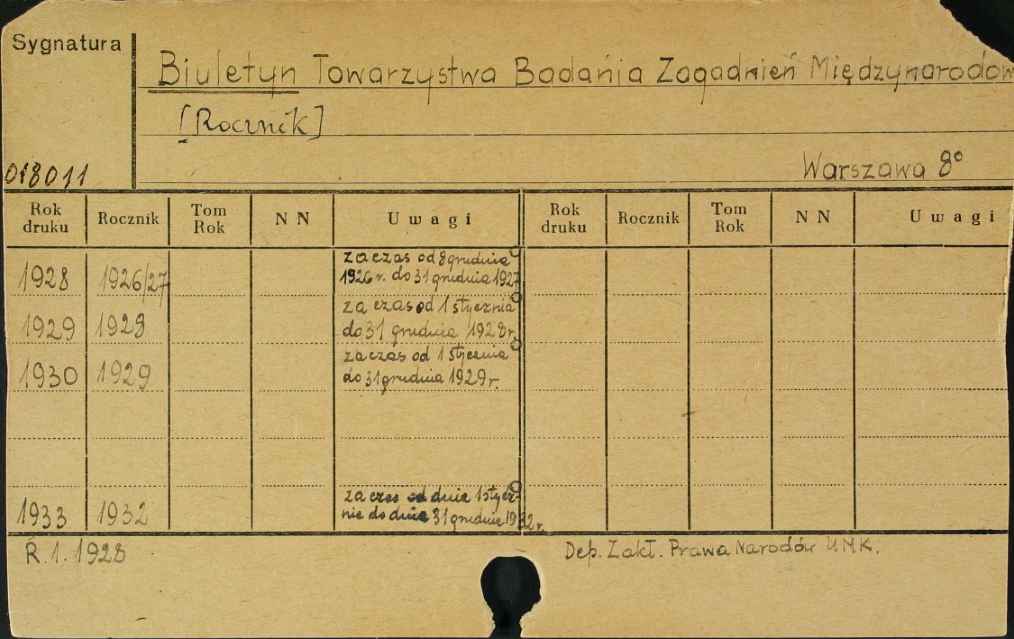 Sygnatura
Biuletyn Towarzystwa Badania Zagadnień Międzynarodow
[Rocznik]
018011
Warszawa 8°
Rok druku Rocznik Tom Rok N N Uwagi Rok druku Rocznik Tom Rok N N Uwagi
1928 1926/27 za czas od 8 grudnia
1926 r. do 31 grudnia 1927
1929 1928 za czas od 1 stycznia
do 31 grudnia 1928 r.
1930 1929 za czas od 1 stycznia
do 31 grudnia 1929 r.
1933 1932 za czas od dnia 1 stycz-
nia do dnia 31 grudnia 1932 r.
R. 1. 1928
Dep. Zakł. Prawa Narodów U.M.K.